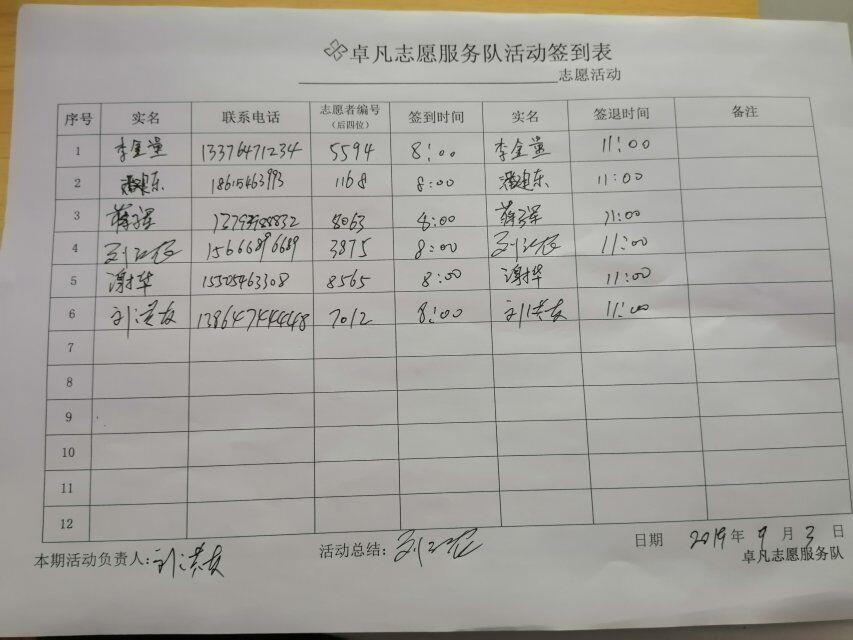 卓凡志愿服务队活动签到表
志愿活动
序号 实名 联系电话 志愿者编号（后四位） 签到时间 实名 签退时间 备注
1 李金量 13376471234 5594 8:00 李金量 11:00
2 18615463993 1168 8:00 11:00
3 8063 8:00 11:00
4 15666896689 3875 8:00 11:00
5 谢华 15505463308 8565 8:00 谢华 11:00
6 刘洪友 13864744448 7012 8:00 刘洪友 11:00
7
8
9
10
11
12
本期活动负责人:刘洪友 活动总结: 日期 2019年9月3日
卓凡志愿服务队